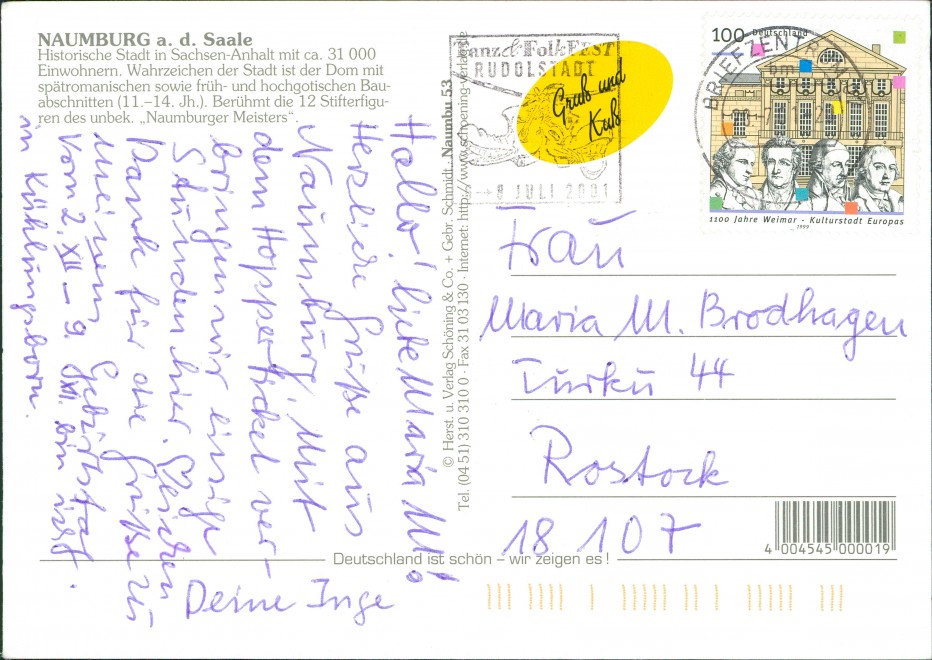 NAUMBURG a. d. Saale
Historische Stadt in Sachsen-Anhalt mit ca. 31 000
Einwohnern. Wahrzeichen der Stadt ist der Dom mit
spätromanischen sowie früh- und hochgotischen Bau-
abschnitten (11.–14. Jh.). Berühmt die 12 Stifterfigu-
ren des unbek. „Naumburger Meisters“.
Hallo! liebe Maria M!
Herzliche Grüße aus
Naumburg. Mit
dem Hoppertickel ver-
bringen wir einige
Stunden hier. Herzlichen
Dank für die Grüße zu
meinem Gebürtstag.
Vom 2. XII – 9. XII. bin ich
in Kühlungsborn.
Deine Inge
© Herst. u. Verlag Schöning & Co. + Gebr. Schmidt · Naumbu 53
Tel. (04 51) 310 310 0 · Fax 31 03 130 · Internet: http://www.schoening-verlag.de
Tanz & FolkFEST
RUDOLSTADT
8 JULI 2001
Gruß und
Kuß
BRIEFZENTRUM
100 Deutschland
1100 Jahre Weimar - Kulturstadt Europas
1999
Frau
Maria M. Brodhagen
Turku 44
Rostock
18 107
4 004545 000019
Deutschland ist schön – wir zeigen es!